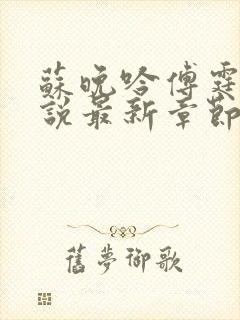 蘇晚吟傅霆
說最新章節
舊夢御歌